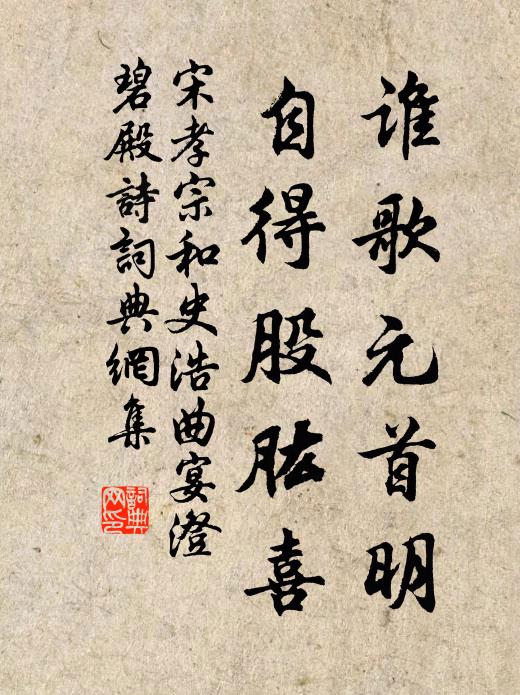 誰歌元首明
自得股肱喜
宋孝宗和史浩曲宴澄
碧殿詩詞典網集
詞典网印